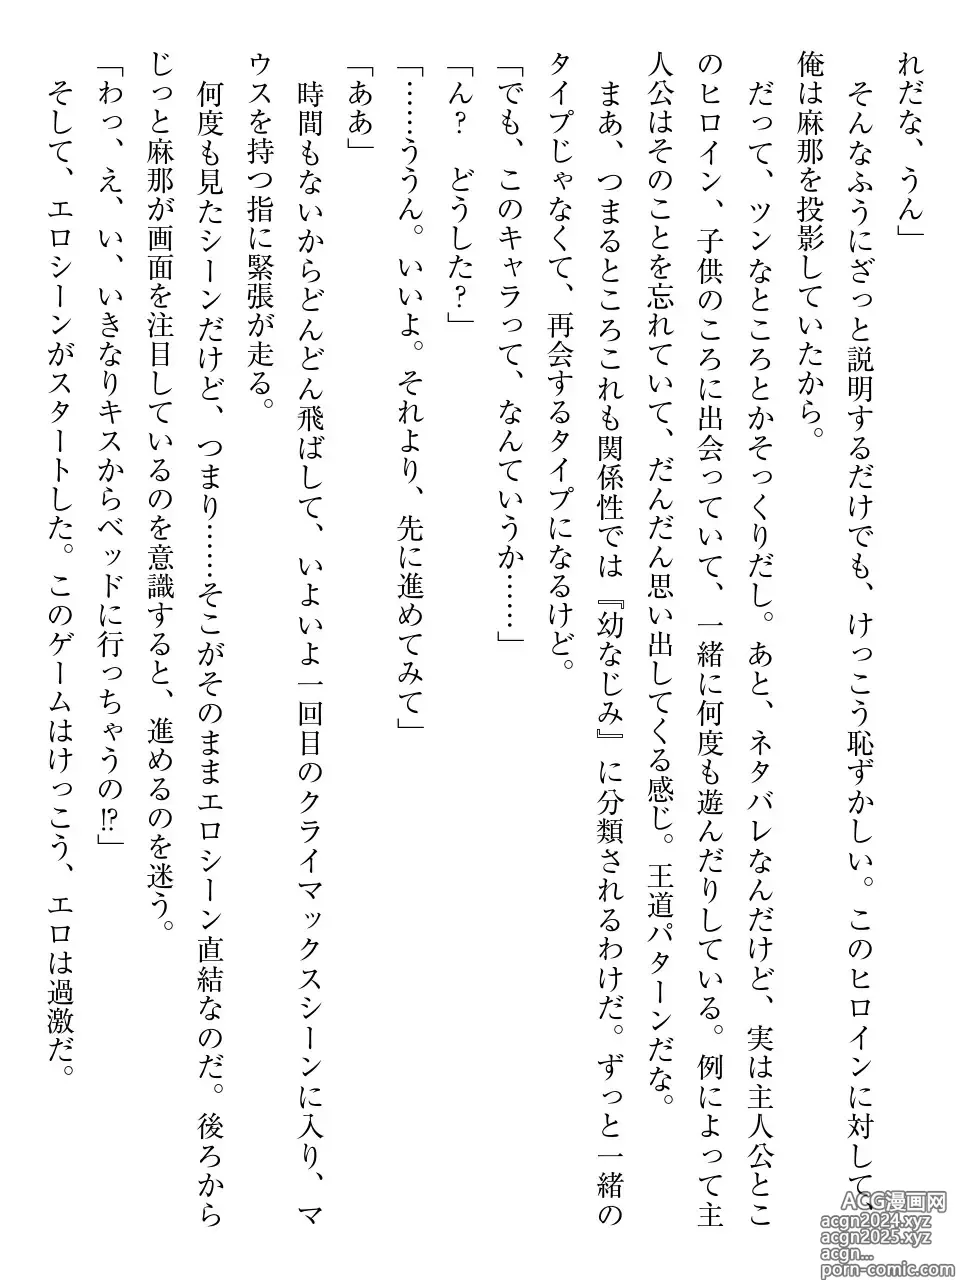 れだな、うん」
　そんなふうにざっと説明するだけでも、けっこう恥ずかしい。このヒロインに対して、
俺は麻那を投影していたから。
　だって、ツンなところとかそっくりだし。あと、ネタバレなんだけど、実は主人公とこ
のヒロイン、子供のころに出会っていて、一緒に何度も遊んだりしている。例によって主
人公はそのことを忘れていて、だんだん思い出してくる感じ。王道パターンだな。
　まあ、つまるところこれも関係性では『幼なじみ』に分類されるわけだ。ずっと一緒の
タイプじゃなくて、再会するタイプになるけど。
「でも、このキャラって、なんていうか……」
「ん？　どうした？」
「……ううん。いいよ。それより、先に進めてみて」
「ああ」
　時間もないからどんどん飛ばして、いよいよ一回目のクライマックスシーンに入り、マ
ウスを持つ指に緊張が走る。
　何度も見たシーンだけど、つまり……そこがそのままエロシーン直結なのだ。後ろから
じっと麻那が画面を注目しているのを意識すると、進めるのを迷う。
「わっ、え、い、いきなりキスからベッドに行っちゃうの!?」
　そして、エロシーンがスタートした。このゲームはけっこう、エロは過激だ。
ACG漫画网
acgn2024.xyz
acgn2025.xyz
acgn...
porn-comic.com